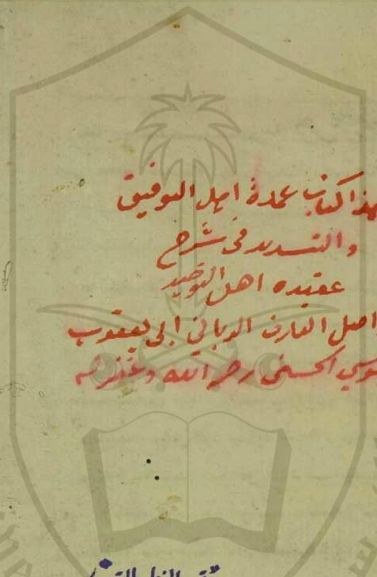 هذا كتاب عمدة اهل التوفيق
والتسديد في شرح
عقيده اهل التوحيد
اصل العارف الرباني ابي يعقوب
وسي الحسني رحمه الله وغفر له